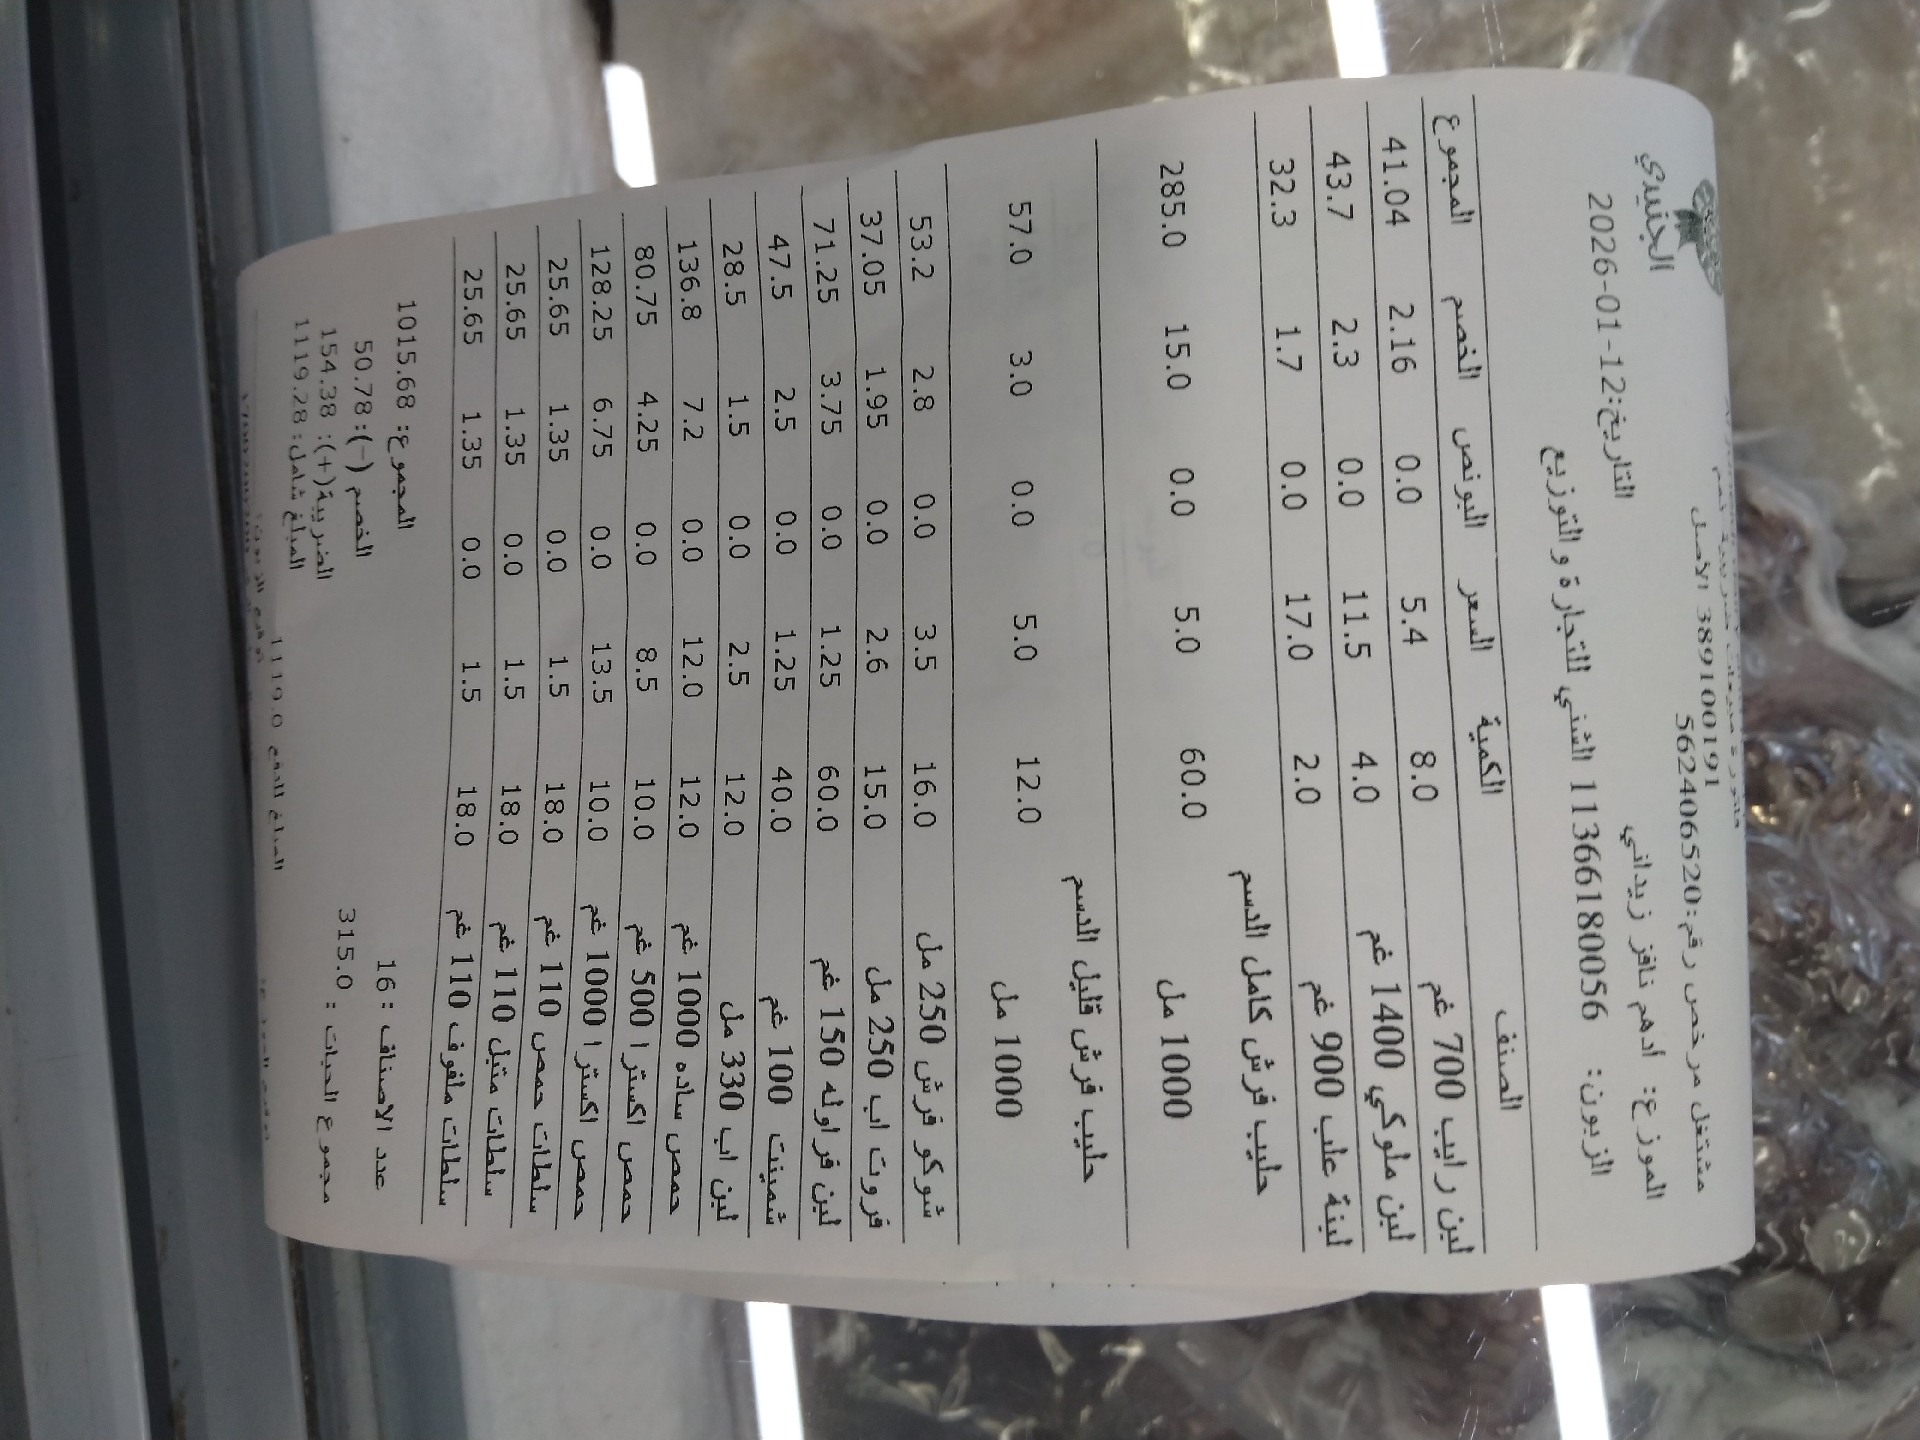 الجنيدي
389100191 الأصل
مشتغل مرخص رقم:562406520
الموزع: أدهم نافز زيداني
التاريخ:2026-01-12
الزبون: 11366180056 الشني للتجارة و التوزيع
الصنف الكمية السعر البونص الخصم المجموع
لبن رايب 700 غم 8.0 5.4 0.0 2.16 41.04
لبن ملوكي 1400 غم 4.0 11.5 0.0 2.3 43.7
لبنة علب 900 غم 2.0 17.0 0.0 1.7 32.3
حليب فرش كامل الدسم
1000 مل 60.0 5.0 0.0 15.0 285.0
حليب فرش قليل الدسم
1000 مل 12.0 5.0 0.0 3.0 57.0
شوكو فرش 250 مل 16.0 3.5 0.0 2.8 53.2
فروت اب 250 مل 15.0 2.6 0.0 1.95 37.05
لبن فراوله 150 غم 60.0 1.25 0.0 3.75 71.25
شمينت 100 غم 40.0 1.25 0.0 2.5 47.5
لبن اب 330 مل 12.0 2.5 0.0 1.5 28.5
حمص ساده 1000 غم 12.0 12.0 0.0 7.2 136.8
حمص اكسترا 500 غم 10.0 8.5 0.0 4.25 80.75
حمص اكسترا 1000 غم 10.0 13.5 0.0 6.75 128.25
سلطات حمص 110 غم 18.0 1.5 0.0 1.35 25.65
سلطات متبل 110 غم 18.0 1.5 0.0 1.35 25.65
سلطات ملفوف 110 غم 18.0 1.5 0.0 1.35 25.65
عدد الاصناف : 16 المجموع: 1015.68
مجموع الحبات : 315.0 الخصم (-): 50.78
الضريبة(+): 154.38
المبلغ شامل: 1119.28
المبلغ الدفع 1119.0